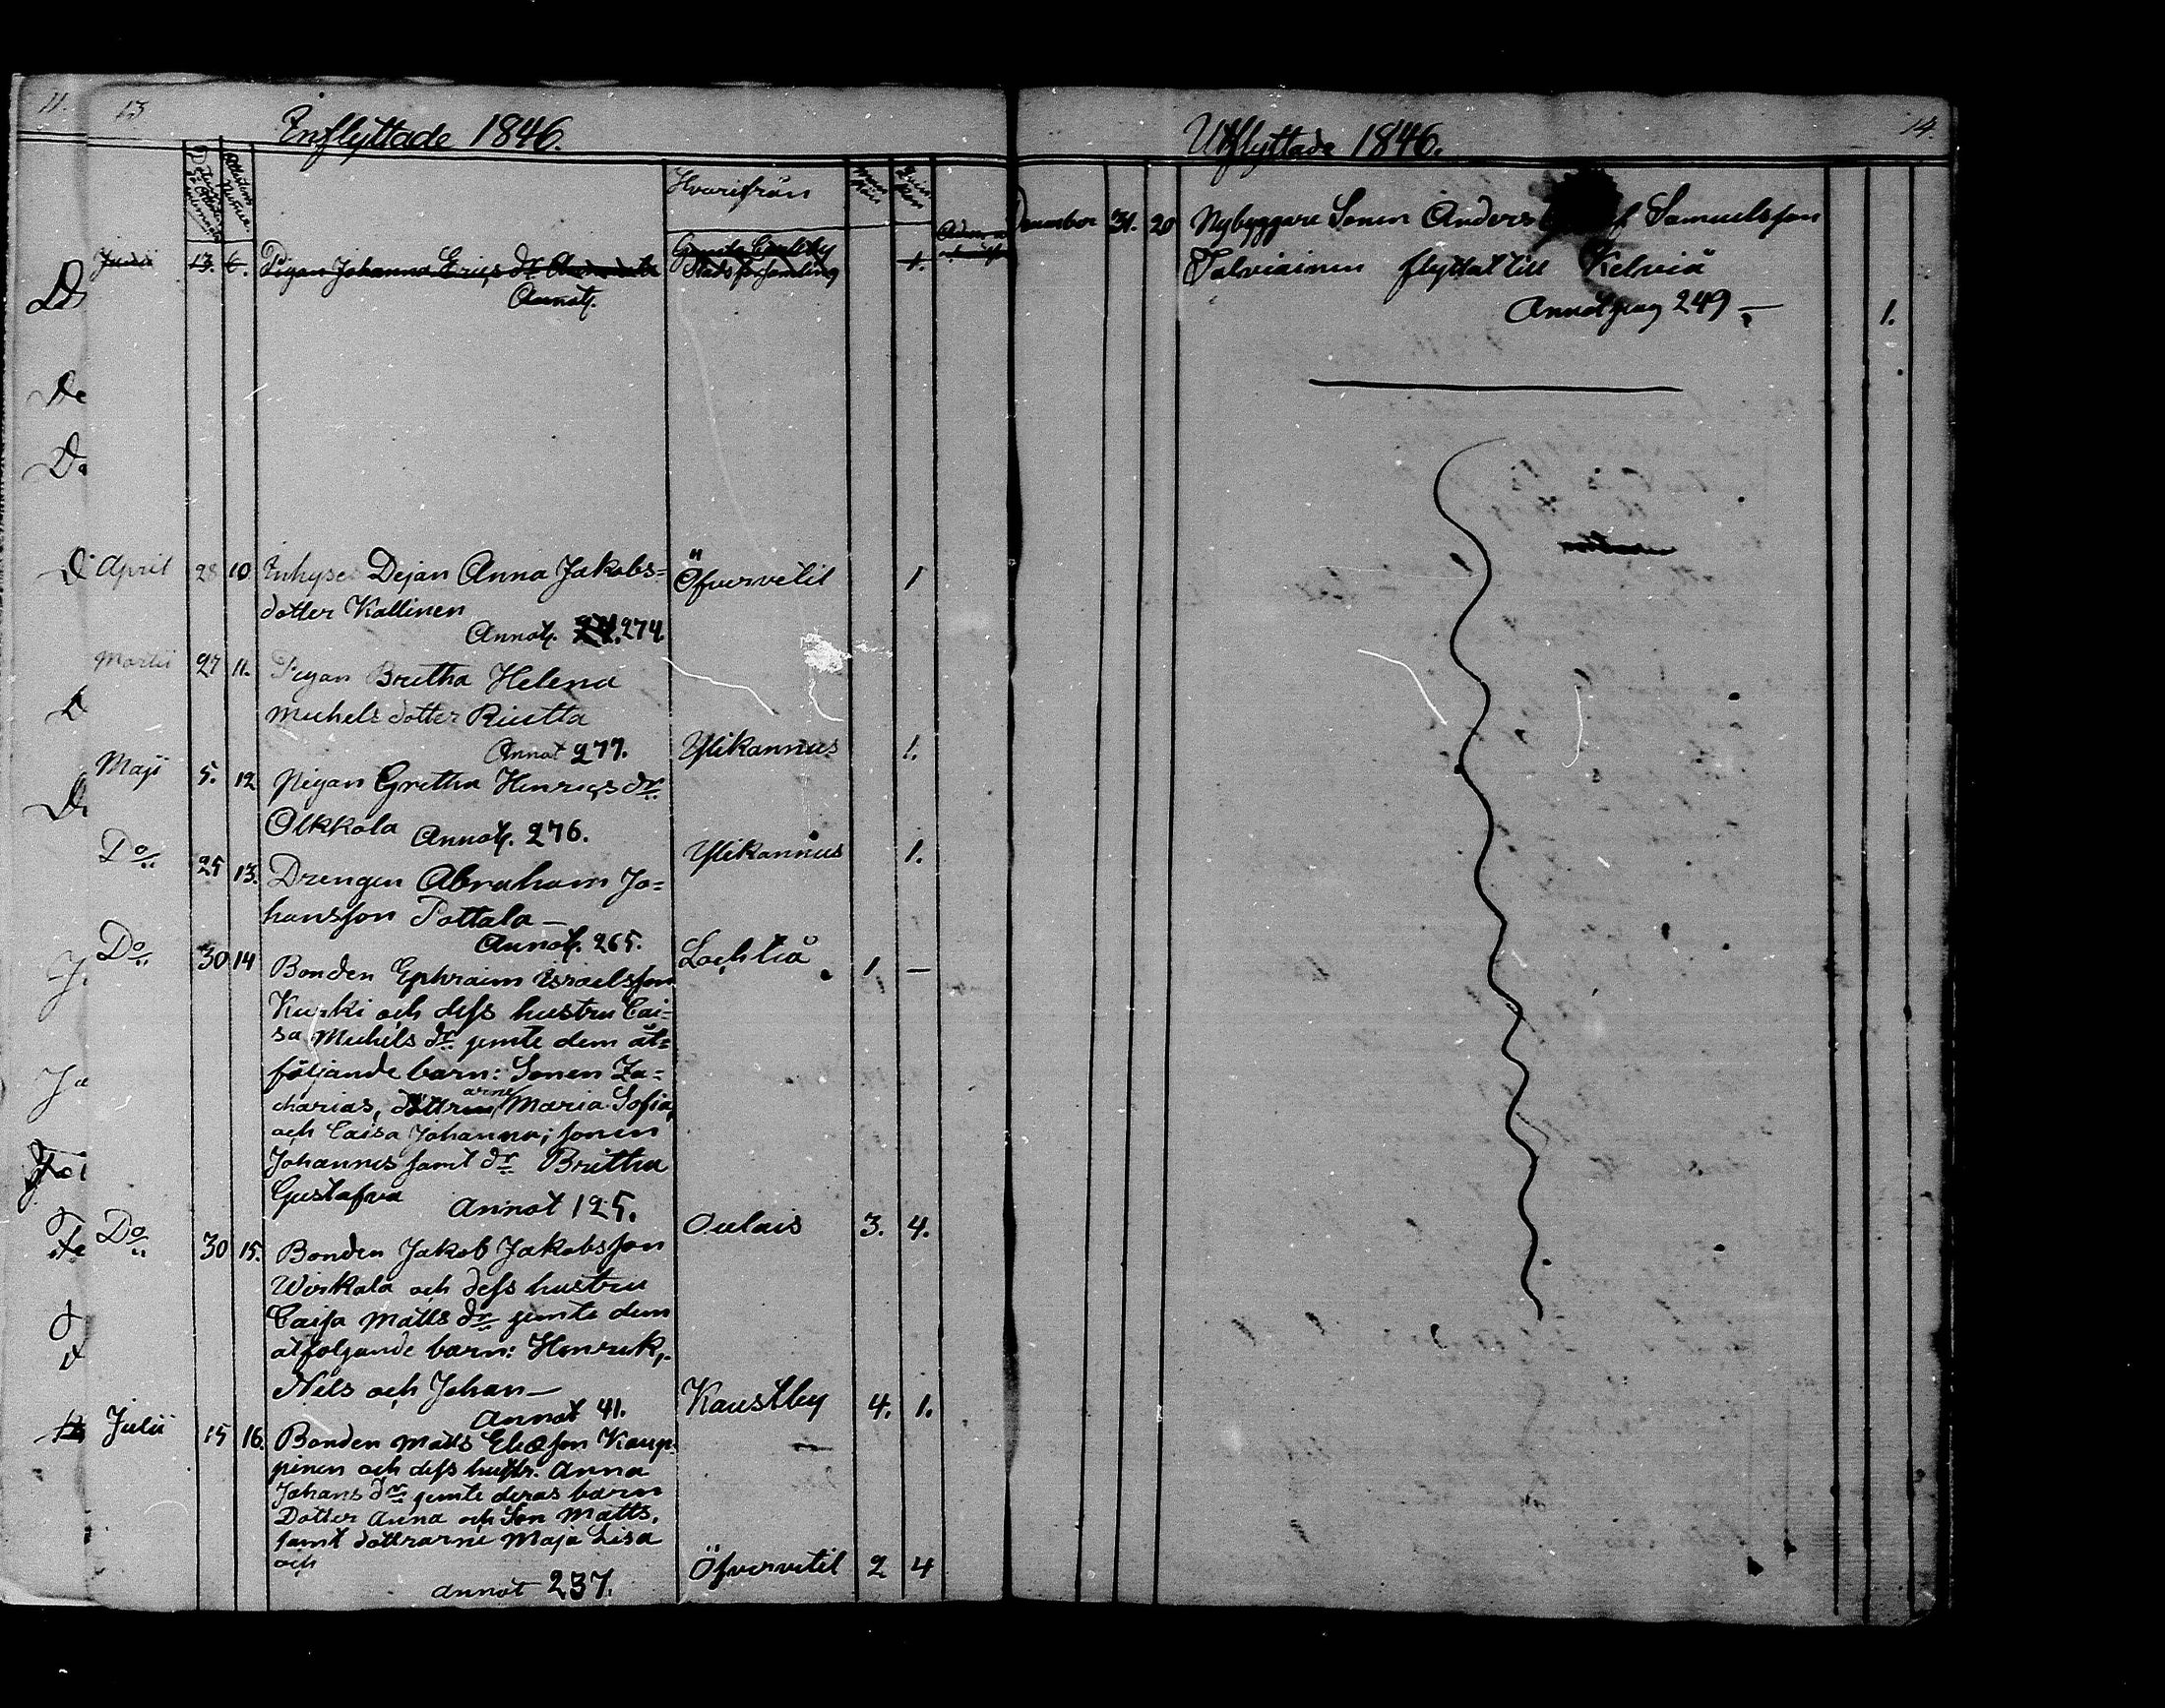 11. 13
Inflyttade 1846.
Hvarifrån
Junii 13. 6. Pigan Johanna Erics dr Gamla Carleby 1.
Stadsförsamling
Annot.
April 28 10 Inhyses Dejan Anna Jakobs=
dotter Kallinen Öfvervetil 1
Annot. 274.
Martii 27 11. Pigan Bretha Helena
Michels dotter Riutta
Annot 277. Ylikannus 1.
Maji 5. 12 Pigan Gretha Henrics dr
Olkkola Annot. 276. Ylikannus 1.
Do 25 13. Drengen Abraham Jo=
hansson Pottala —
Annot. 265. Lochteå 1. —
Do 30 14 Bonden Ephraim Israelsson
Kurki och dess hustru Cai=
sa Michels dr jemte dem åt=
följande barn: Sonen Za=
charias, döttrarne Maria Sofia,
och Caisa Johanna; sonen
Johannes samt dr Britha
Gustafva Annot 125. Oulais 3. 4.
Do 30 15. Bonden Jakob Jakobsson
Wirkala och dess hustru
Caisa Matts dr jemte dem
åtföljande barn: Henrik,
Nils och Johan —
Annot 41. Kaustby 4. 1.
Julii 15 16. Bonden Matts Eliasson Kaup=
pinen och dess hustr. Anna
Johans dr jemte deras barn
Dotter Anna och Son Matts,
samt döttrarne Maja Lisa
och
Annot 237. Öfvervetil 2 4
14.
Utflyttade 1846.
December 31. 20 Nybyggare Sonen Anders Samuelsson
Salviainen flyttat till Kelviå
Annot pag 249 — 1.